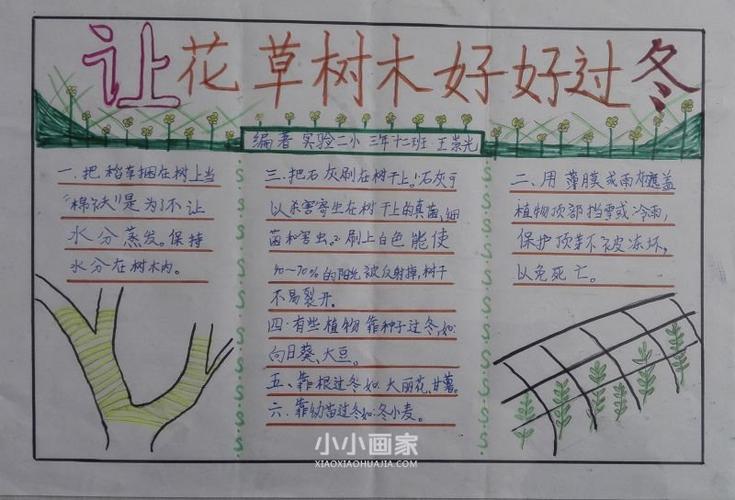 让花草树木好好过冬
编著 实验二小 三年十二班 王崇光
一.把稻草捆在树上当
"棉衣"是为了不让
水分蒸发。保持
水分在树木内。
三.把石灰刷在树干上。1.石灰可
以杀害寄生在树干上的真菌,细
菌和害虫。2.刷上白色能使
40~70%的阳光被反射掉,树干
不易裂开。
四.有些植物靠种子过冬,如
向日葵、大豆。
五、靠根过冬如大丽花,甘薯。
六.靠幼苗过冬如:冬小麦。
二.用薄膜或雨布遮盖
植物顶部挡雪或冷雨,
保护顶芽不被冻坏,
以免死亡。
小小画家
XIAOXIAOHUAJIA.COM